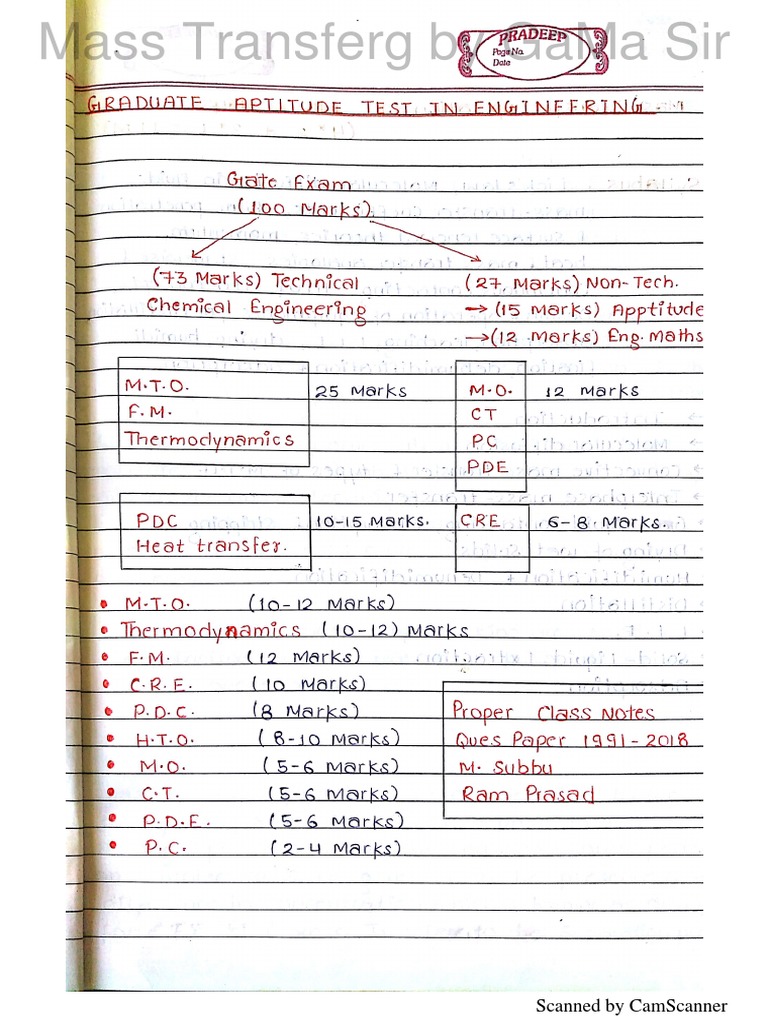 Mass Transferg by GaMa Sir
PRADEEP
Page No.
Date
GRADUATE APTITUDE TEST IN ENGINEERING -
Gate Exam
(100 Marks)
(73 Marks) Technical (27 Marks) Non-Tech.
Chemical Engineering → (15 marks) Apptitude
→ (12 marks) Eng. Maths
M.T.O. 25 Marks M.O. 12 Marks
F.M. CT
Thermodynamics PC
PDE
PDC 10-15 Marks. CRE 6-8 Marks.
Heat transfer.
• M.T.O. (10-12 Marks)
• Thermodynamics (10-12) Marks
• F.M. (12 Marks)
• C.R.E. (10 Marks)
• P.D.C. (8 Marks) Proper Class Notes
• H.T.O. (8-10 Marks) Ques Paper 1991-2018
• M.O. (5-6 Marks) M. Subbu
• C.T. (5-6 Marks) Ram Prasad
• P.D.E. (5-6 Marks)
• P.C. (2-4 Marks)
Scanned by CamScanner